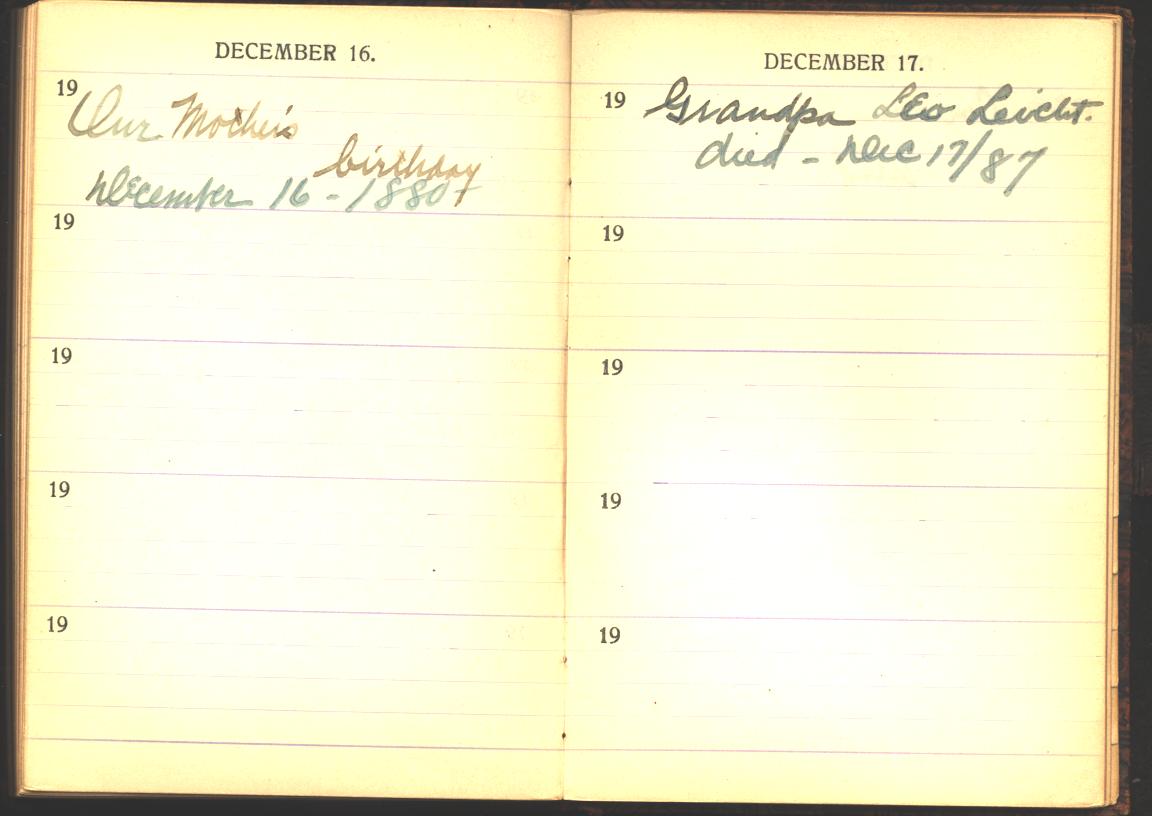 DECEMBER 16.
19
Our Mother's
birthday
December 16 - 1880
19
19
19
19
DECEMBER 17.
19 Grandpa Leo Leicht.
died - Dec 17/87
19
19
19
19